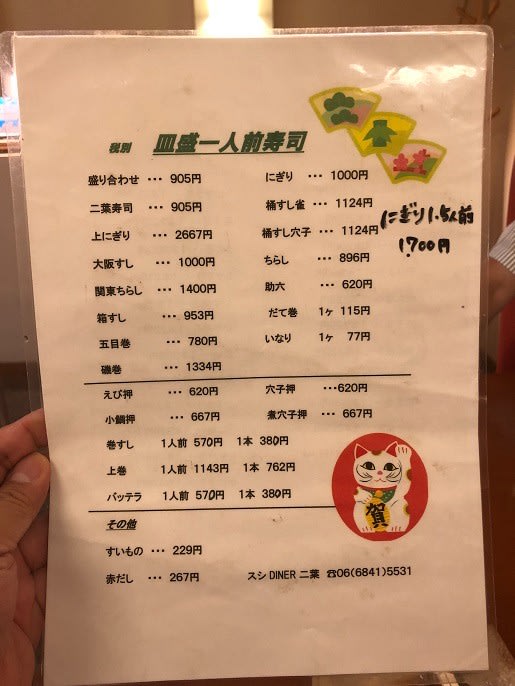 税別 皿盛一人前寿司
盛り合わせ ・・・ 905円
二葉寿司 ・・・ 905円
上にぎり ・・・ 2667円
大阪すし ・・・ 1000円
関東ちらし ・・・ 1400円
箱すし ・・・ 953円
五目巻 ・・・ 780円
磯巻 ・・・ 1334円
にぎり ・・・ 1000円
桶すし雀 ・・・ 1124円
桶すし穴子 ・・・ 1124円
ちらし ・・・ 896円
助六 ・・・ 620円
だて巻 1ヶ 115円
いなり 1ヶ 77円
にぎり1.5人前
1700円
えび押 ・・・ 620円
穴子押 ・・・620円
小鯛押 ・・・ 667円
煮穴子押 ・・・ 667円
巻すし 1人前 570円 1本 380円
上巻 1人前 1143円 1本 762円
バッテラ 1人前 570円 1本 380円
賀
その他
すいもの ・・・ 229円
赤だし ・・・ 267円
スシ DINER 二葉 ☎06(6841)5531